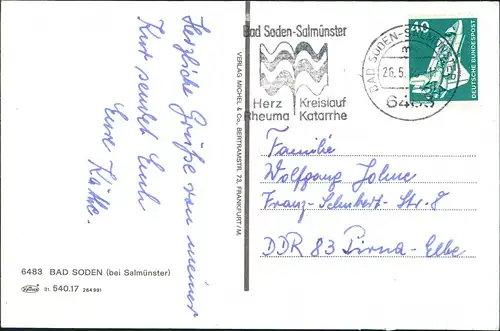 Herzliche Grüße von meiner
Kur sendet Euch
Eure Käthe.
6483 BAD SODEN (bei Salmünster)
21 540.17 264991
VERLAG MICHEL & Co., BERTRAMSTR. 73, FRANKFURT/M.
Bad Soden-Salmünster
Herz Kreislauf
Rheuma Katarrhe
BAD SODEN-SALMÜNSTER
m
26.5.
6483
40
DEUTSCHE BUNDESPOST
Familie
Wolfgang Johne
Franz-Schubert-Str. 8
DDR 83 Pirna-Elbe